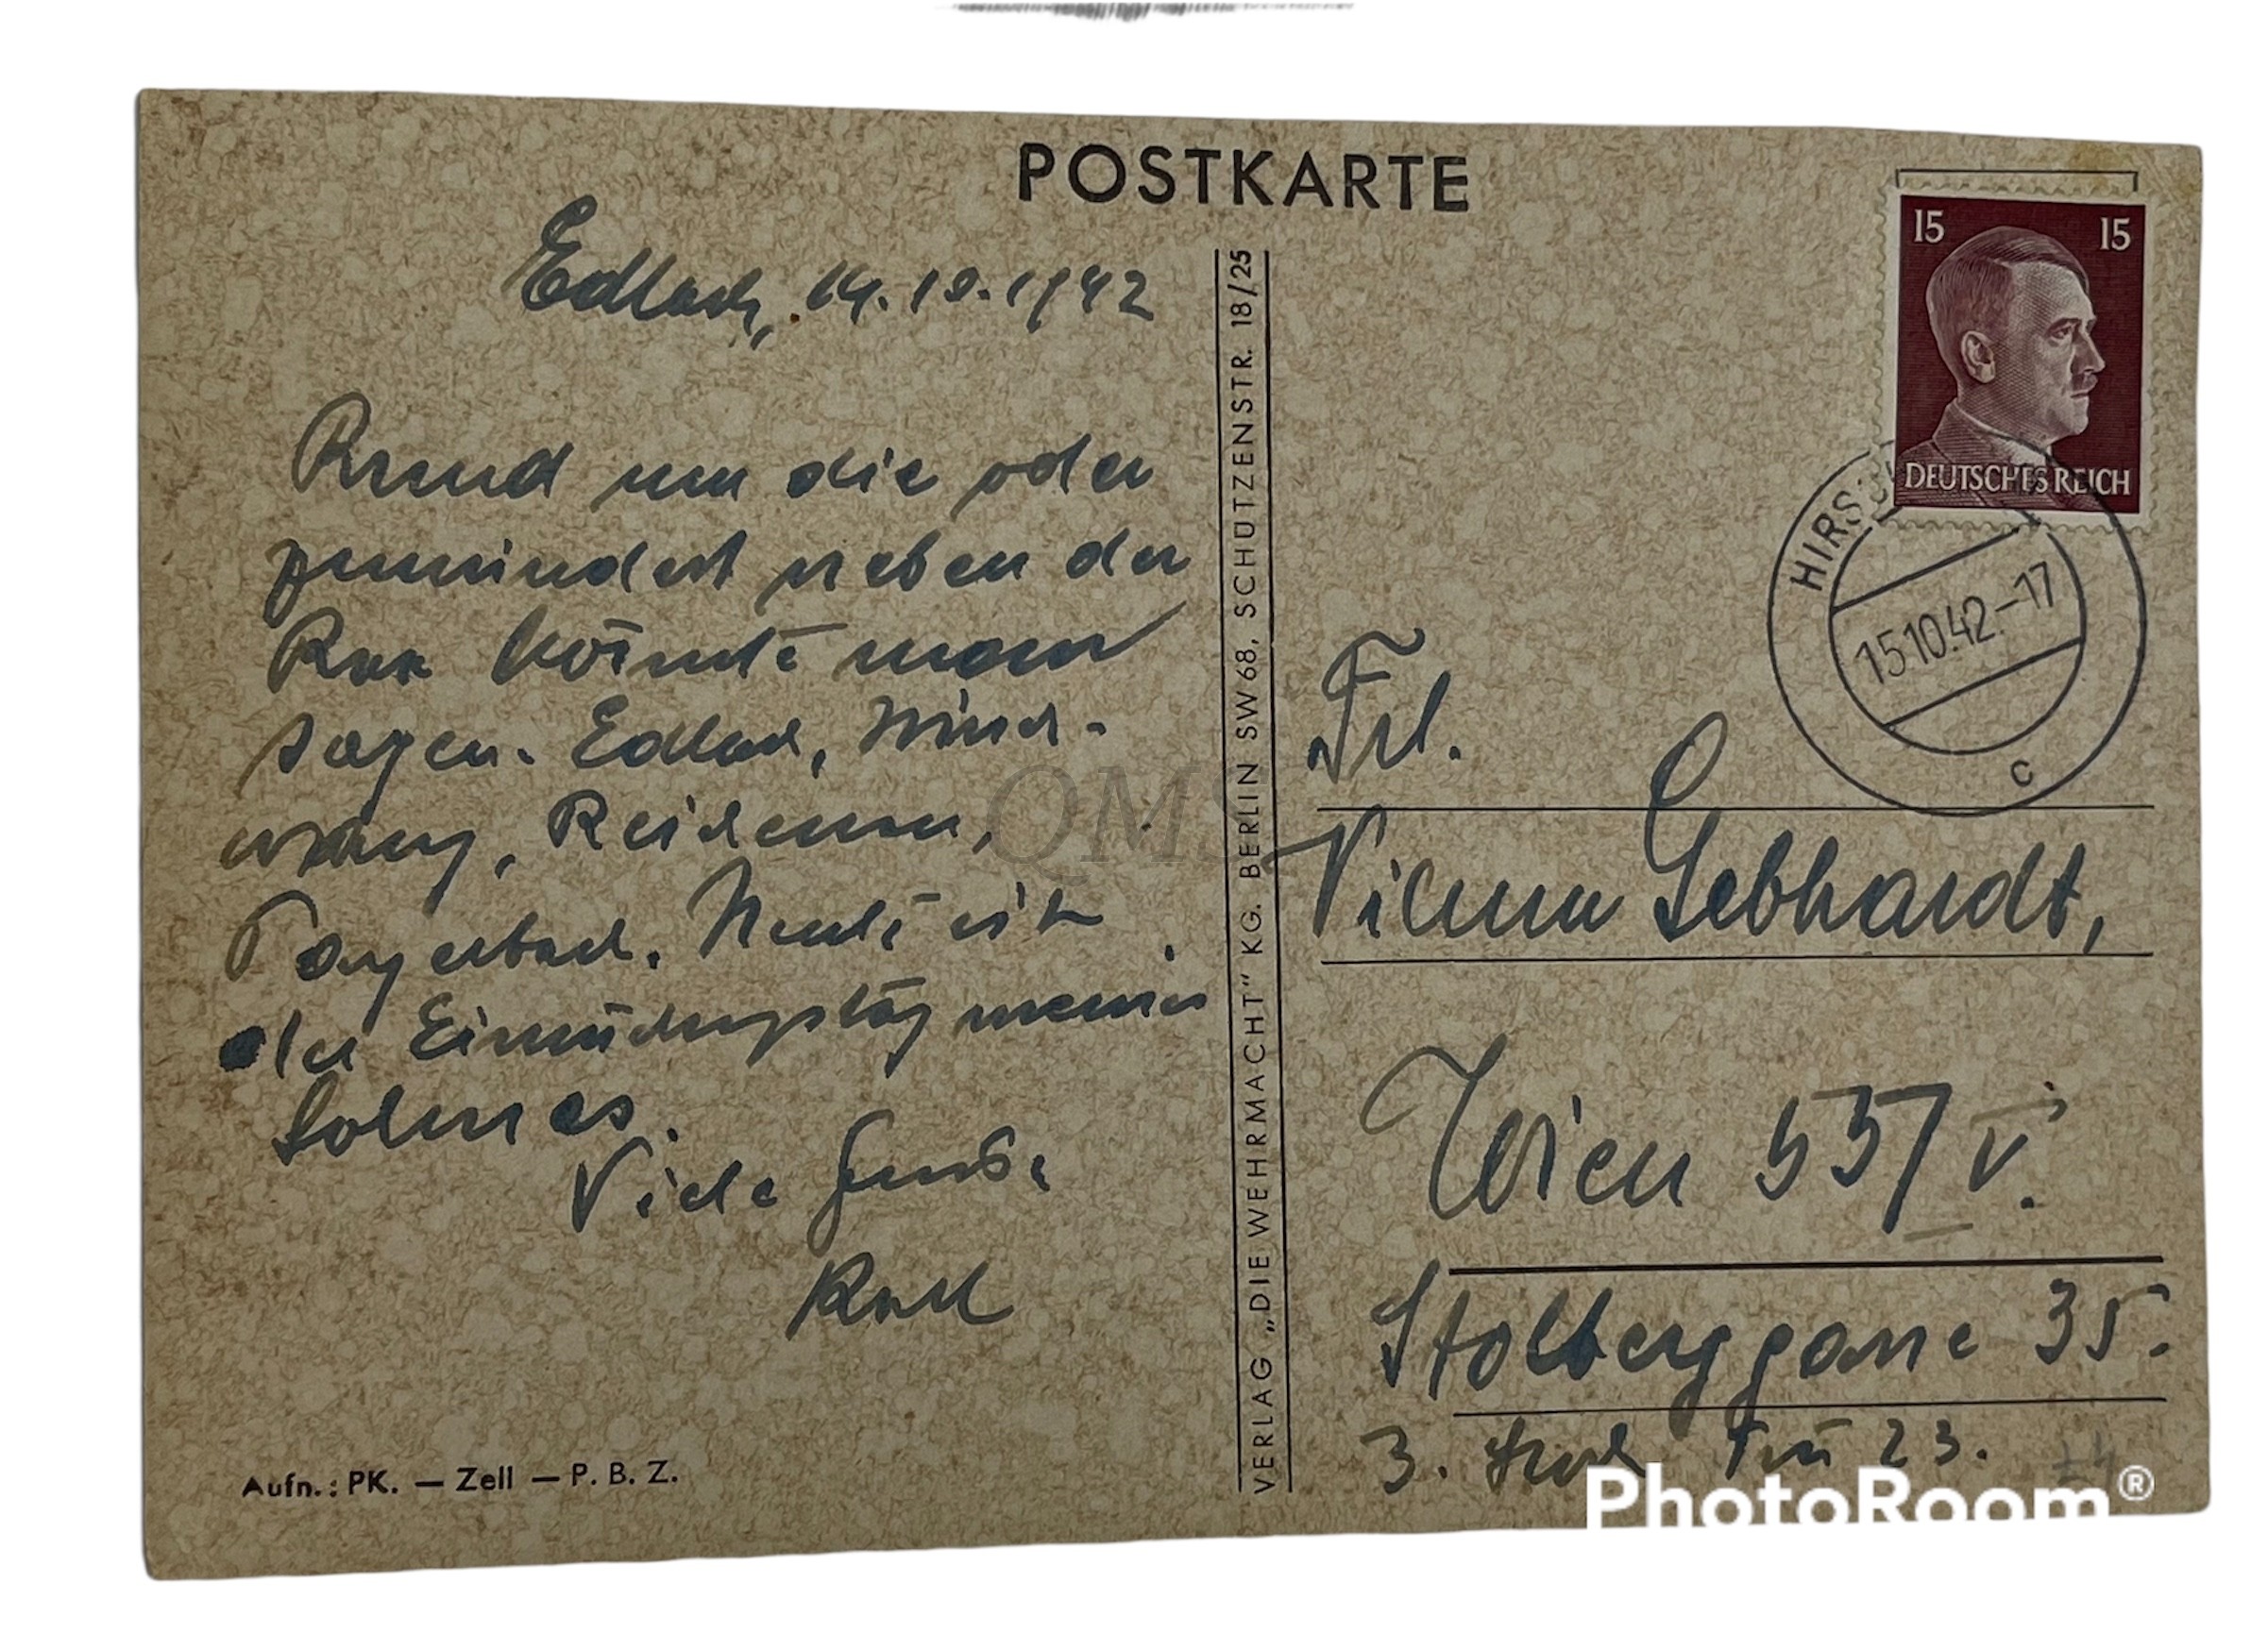 POSTKARTE
Edlach, 14.10.1942
Rund um die oder
zumindest neben der
Rax könnte man
sagen. Edlach, Hirsch-
wang, Reichenau,
Payerbach. Heute ist
der Einrückungstag meines
Sohnes.
Viele Grüße
Aufn.: PK. — Zell — P. B. Z.
VERLAG „DIE WEHRMACHT" KG. BERLIN SW 68, SCHÜTZENSTR. 18/25
15 15
DEUTSCHES REICH
HIRSCH
15.10.42.-17
c
Frl.
Gebhardt,
Wien
Stolberggasse 35.
3. Stock Tür 23.
QMS
PhotoRoom®